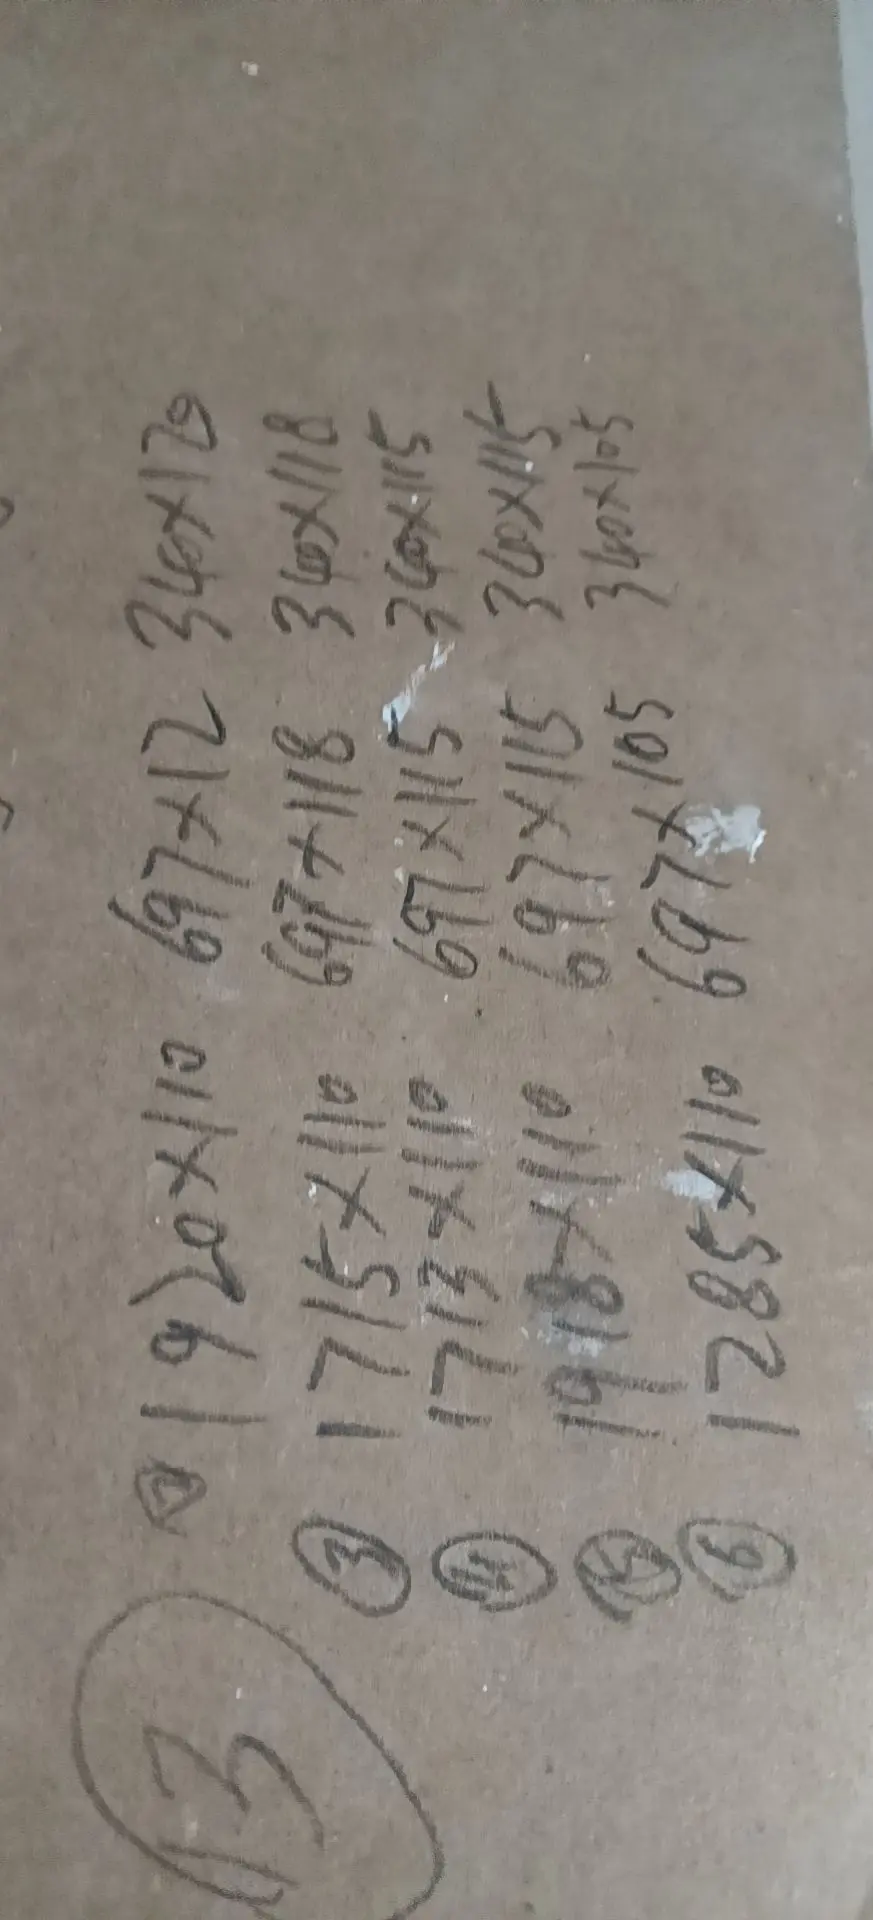 13
1920x110 697x12 340x120
3 1715x110 697x118 340x118
4 1713x110 697x115 340x115
5 1918x110 697x115 340x115
6 1285x110 697x105 340x105